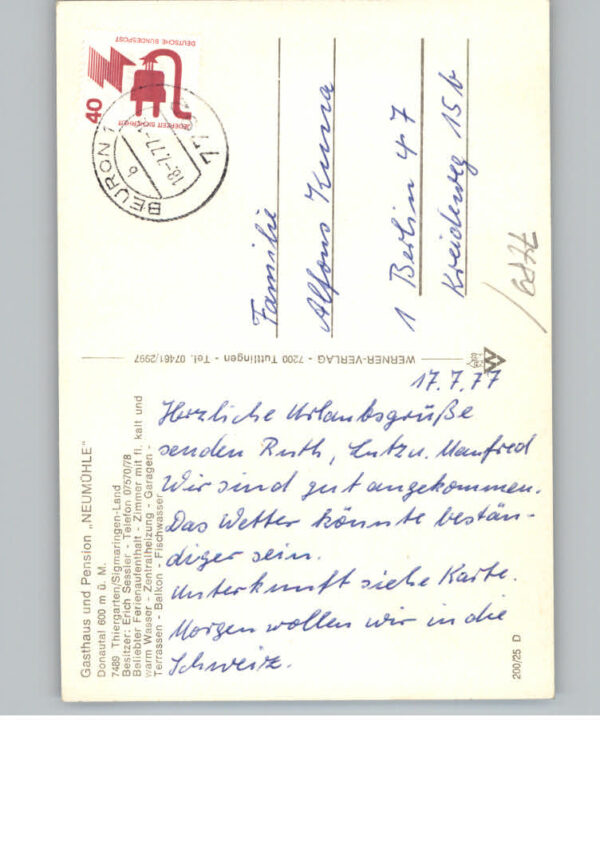 Gasthaus und Pension „NEUMÜHLE"
Donautal 600 m ü. M.
7489 Thiergarten/Sigmaringen-Land
Besitzer: Erich Sessler - Telefon 07570/78
Beliebter Ferienaufenthalt - Zimmer mit fl. kalt und
warm Wasser - Zentralheizung - Garagen -
Terrassen - Balkon - Fischwasser
17.7.77
Herzliche Urlaubsgrüße
senden Ruth, Lutz u. Manfred
Wir sind gut angekommen.
Das Wetter könnte bestän-
diger sein.
Unterkunft siehe Karte.
Morgen wollen wir in die
Schweiz.
200/25 D
WERNER-VERLAG - 7200 Tuttlingen - Tel. 07461/2997
W
DEUTSCHE BUNDESPOST
JEDERZEIT SICHERHEIT
40
BEURON 1
b
18.-7.77
Familie
Alfons
1 Berlin 47
Kreideweg 15b